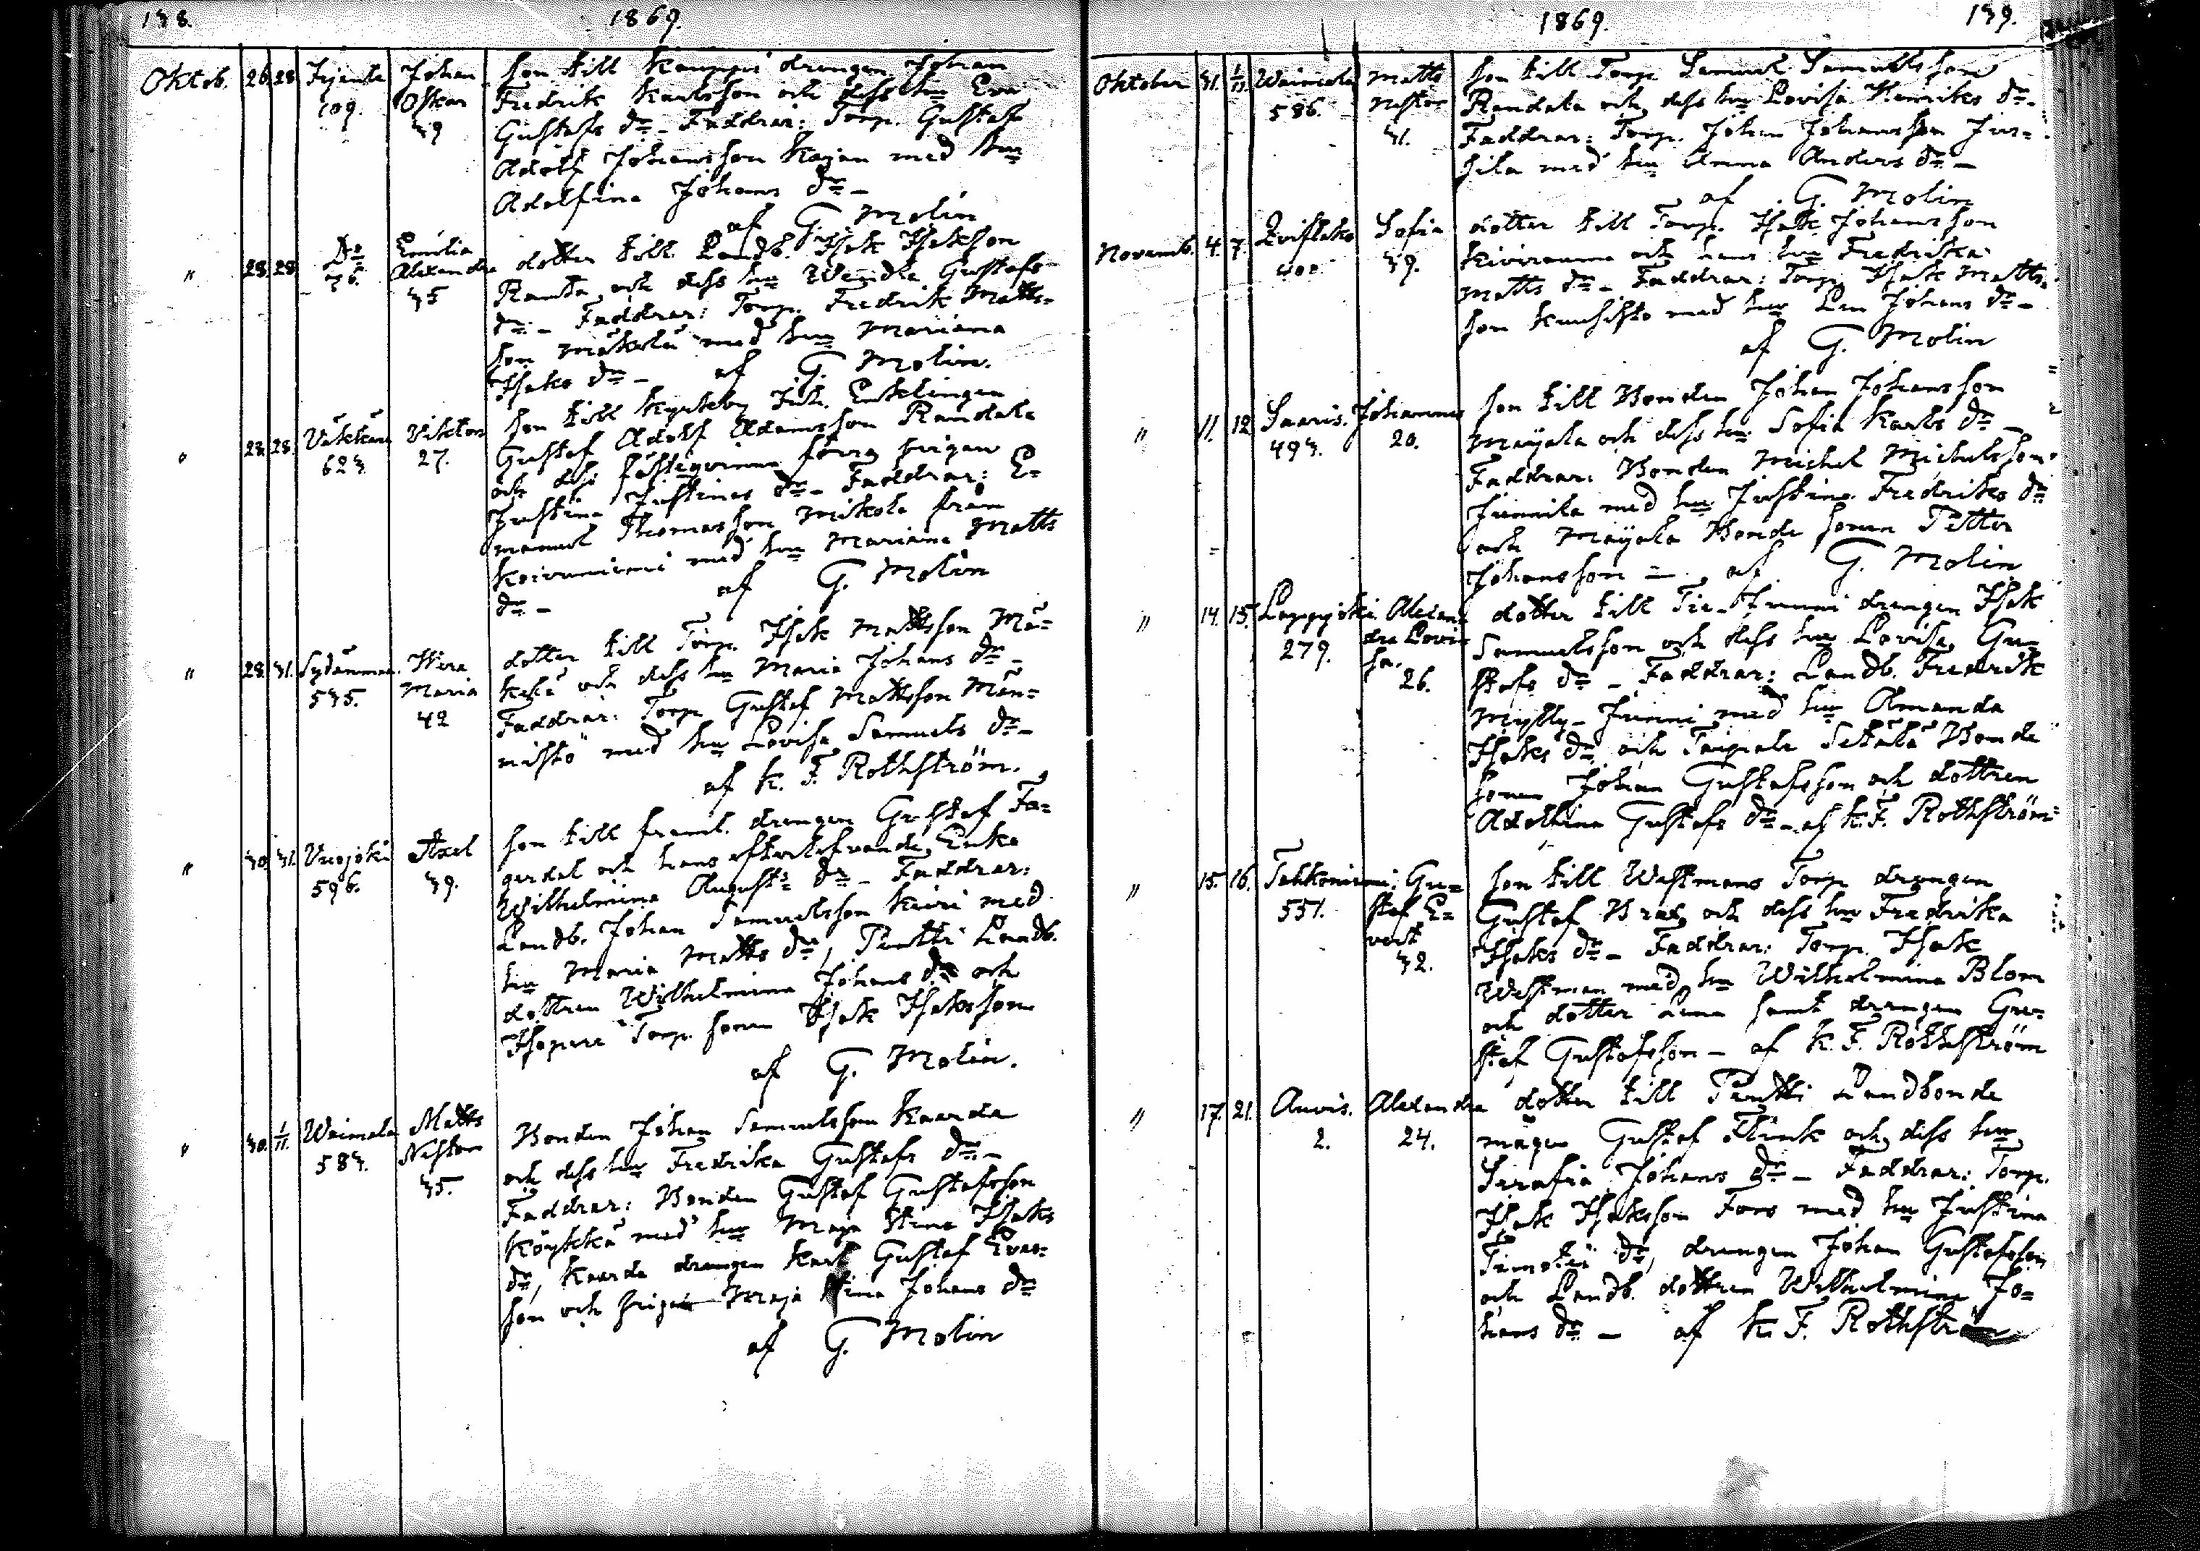 138. 1869.
Oktob. 26 28 Irjanta Johan son till Kauppi drengen Johan
109. Oskar Fredrik Karlsson och dess hu Eva
39 Gustafs dr - Faddrar: Torp. Gustaf
Adolf Johansson Kajan med hu
Adolfina Johans dr -
af G. Molin
" 28 28 Do Emilia dotter till Landb. Isak Isaksson
76. Alexandra Ranta och dess hu Wendla Gustafs
35 dr - Faddrar: Torp. Fredrik Matts-
son Mäkelä med hu Mariana
Isaks dr - af G. Molin.
" 28 Viktor son till Kyrkoby Inh. Enklingen
623. 27. Gustaf Adolf Adamsson Randala
och dess fästeqvinna förra pigan
Justina Justinas dr - Faddrar: E-
manuel Thomasson Mikola från
Koivuniemi med hu Mariana Matts
dr - af G. Molin
" 28. 31. Sydänmaa. Wera dotter till Torp. Isak Mattsson Mä-
535. Maria kelä och dess hu Maria Johans dr -
42 Faddrar: Torp. Gustaf Mattsson Män-
nistö med hu Lovisa Samuels dr -
af K. F. Rothström.
" 30. 31. Vuojoki Axel son till framl. drengen Gustaf Fa-
596. 39. gerdal och hans efterlefvande Enka
Wilhelmina Augusts dr - Faddrar:
Landb. Johan Samuelsson Kiiri med
hu Maria Matts dr, Pentti Landb.
dottren Wilhelmina Johans dr och
Torp. sonen Isak Isaksson
af G. Molin.
" 30. 1/11. Weimela Matts Bonden Johan Samuelsson Kaarda
583. Nestor och dess hu Fredrika Gustafs dr -
35. Faddrar: Bonden Gustaf Gustafsson
Köykkä med hu Maja Stina Isaks
dr, Kaarda drengen Karl Gustaf Evas-
son och pigan Maja Stina Johans dr
af G. Molin
1869. 139.
Oktober 31. 1/11. Weimela Matts son till Torp. Samuel Samuelsson
586. Nestor Randala och dess hu Lovisa Henriks dr -
31. Faddrar: Torp. Johan Johansson Jus-
sila med hu Anna Anders dr -
af G. Molin
Novemb. 4. 7. Sofia dotter till Torp. Isak Johansson
39. Kiviranna och hans hu Fredrika
Matts dr - Faddrar: Torp. Isak Matts-
son Kuusisto med hu Lena Johans dr -
af G. Molin
" 11. 12 Saaris. Johannes son till Bonden Johan Johansson
493. 20. Mäyälä och dess hu Sofia Karls dr -
Faddrar: Bonden Michel Michelsson
Junnila med hu Justina Fredriks dr
och Mäyälä Bonde sonen Petter
Johansson - af G. Molin
" 14. 15. Lappijoki Alexan- dotter till Junni drengen Isak
279. dra Lovi- Samuelsson och dess hu Lovisa Gu-
sa. stafs dr - Faddrar: Landb. Fredrik
26. Mylly-Junni med hu Amanda
Isaks dr och Taipale Setälä Bonde
sonen Johan Gustafsson och dottren
Adolfina Gustafs dr - af K. F. Rothström
" 15. 16. Tahkoniemi Gu- son till Westmans Torp. drengen
551. staf E- Gustaf Brax och dess hu Fredrika
vert Isaks dr - Faddrar: Torp. Isak
32. Westman med hu Wilhelmina Blom
och dotter Lena samt drengen Gu-
staf Gustafsson - af K. F. Rothström
" 17. 21. Auvis. Alexandra dotter till Pentti Landbonde
2. 24. mågen Gustaf Flink och dess hu
Serafia Johans dr - Faddrar: Torp.
Isak Isaksson Fors med hu Justina
Timotei dr, drengen Johan Gustafsson
och Landb. dottren Wilhelmina Jo-
hans dr - af K. F. Rothström